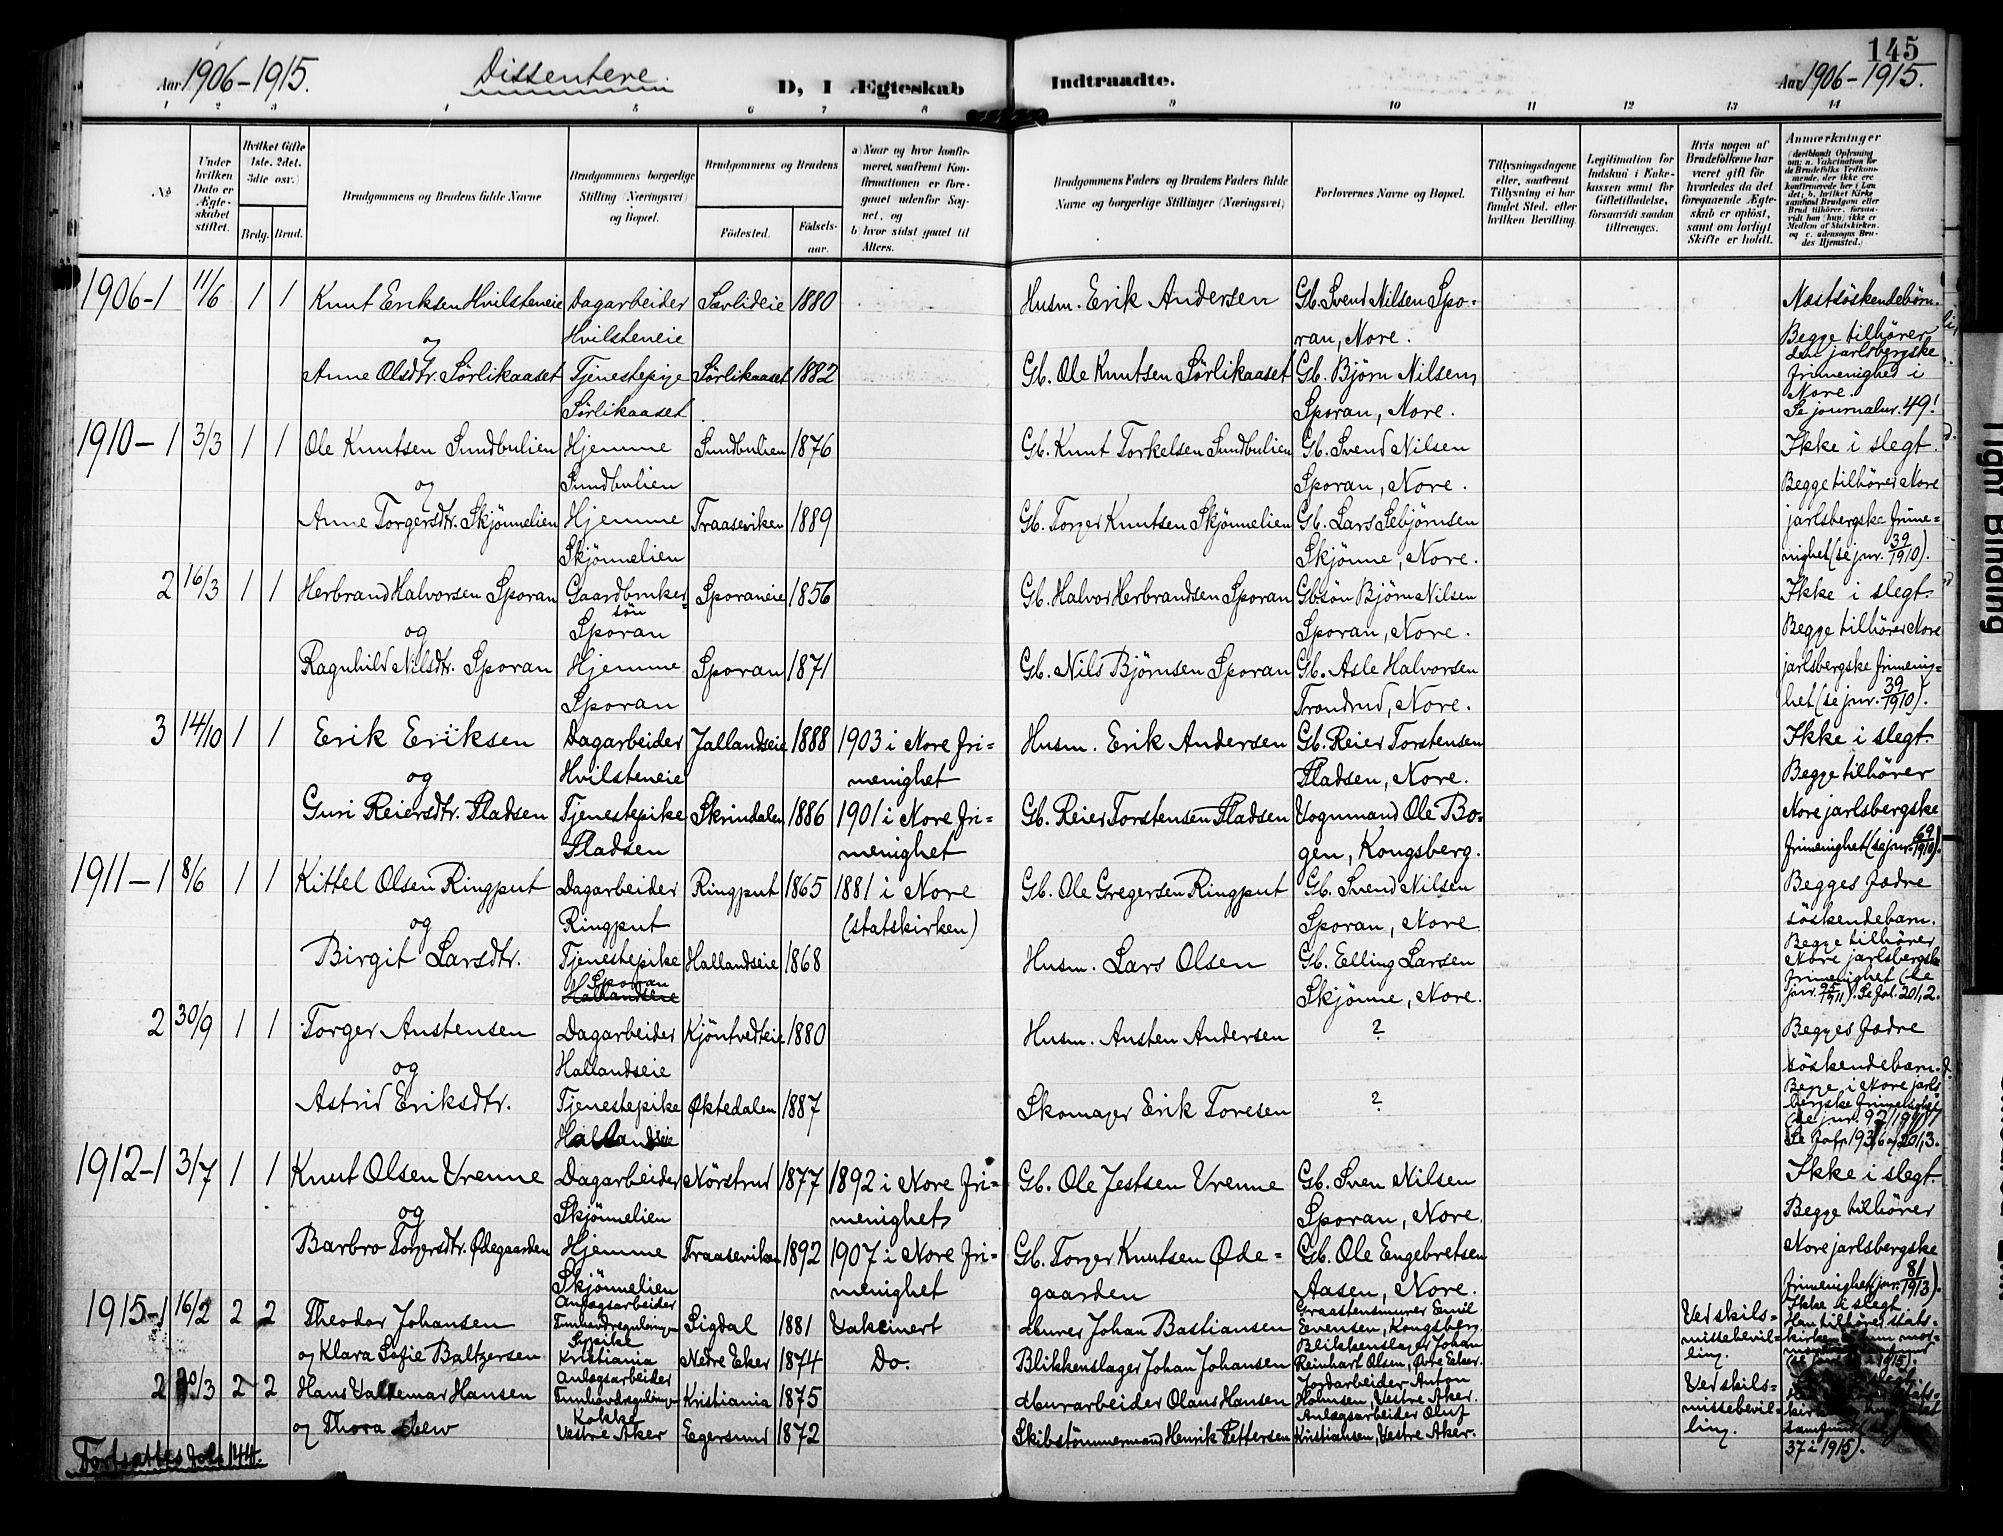 145
Aar 1906-1915. Dissentere. D, I Ægteskab Indtraadte. Aar 1906-1915.
1 2 3 4 5 6 7 8 9 10 11 12 13 14
No
Under hvilken Dato er Ægteskabet stiftet.
Hvilket Gifte (1ste, 2det, 3die osv.)
Brdg. Brud.
Brudgommens og Brudens fulde Navne
Brudgommens borgerlige Stilling (Næringsvei) og Bopæl.
Brudgommens og Brudens
Fødested. Fødsels-aar.
a) Naar og hvor konfirmeret, saafremt Konfirmationen er foregaaet udenfor Sognet, og
b hvor sidst gaaet til Alters.
Brudgommens Faders og Brudens Faders fulde Navne og borgerlige Stillinger (Næringsvei)
Forlovernes Navne og Bopæl.
Tillysningsdagene eller, saafremt Tillysning ei har fundet Sted, efter hvilken Bevilling.
Legitimation for Indskud i Enkekassen samt for Giftetilladelse, forsaavidt saadan tiltrænges.
Hvis nogen af Brudefolkene har været gift før hvorledes da det foregaaende Ægteskab er opløst, samt om lovligt Skifte er holdt.
Anmærkninger
1906-1 11/6 1 1 Knut Eriksen Hvilsteneie Dagarbeider Sørlideie 1880 Husm. Erik Andersen Gb. Svend Nilsen Spo- Næstsöskendebörn.
og Hvilsteneie ran, Nore. Begge tilhører
den jarlsbergske
Anne Olsdtr. Sörlikaaset Tjenestepige Sörlikaaset 1882 Gb. Ole Knutsen Sörlikaaset Gb. Björn Nilsen, frimenighed i
Nore.
Sörlikaaset Sporan, Nore. Se journalnr. 49!
1910-1 3/3 1 1 Ole Knutsen Sundbulien Hjemme Sundbulien 1876 Gb. Knut Torkelsen Sundbulien Gb. Svend Nilsen Ikke i slegt.
og Sundbulien Sporan, Nore. Begge tilhører Nore
Anne Torgersdtr. Skjönnelien Hjemme Traaseviken 1889 Gb. Torger Knutsen Skjönnelien Gb. Lars Sebjörnsen jarlsbergske frime-
Skjönnelien Skjönne, Nore. nighet (se jnr. 39/1910).
2 16/3 1 1 Herbrand Halvorsen Sporan Gaardbruker- Sporaneie 1856 Gb. Halvor Herbrandsen Sporan Gbsön Björn Nilsen Ikke i slegt.
sön
og Sporan Sporan, Nore. Begge tilhører Nore
Ragnhild Nilsdtr. Sporan Hjemme Sporan 1871 Gb. Nils Björnsen Sporan Gb. Asle Halvorsen jarlsbergske frimenig-
Sporan Trondrud, Nore. het (se jnr. 39/1910).
3 14/10 1 1 Erik Eriksen Dagarbeider Jallandseie 1888 1903 i Nore fri- Husm. Erik Andersen Gb. Reier Torstensen Ikke i slegt.
og Hvilsteneie menighet Pladsen, Nore. Begge tilhører
Guri Reiersdtr. Pladsen Tjenestepike Skrindalen 1886 1901 i Nore fri- Gb. Reier Torstensen Pladsen Vognmand Ole Bo- Nore jarlsbergske
Pladsen menighet gen, Kongsberg. frimenighet (se jnr. 69/1910).
1911-1 8/6 1 1 Kittel Olsen Ringput Dagarbeider Ringput 1865 1881 i Nore Gb. Ole Gregersen Ringput Gb. Svend Nilsen Begges fædre
og Ringput (statskirken) Sporan, Nore söskendebarn.
Begge tilhører
Birgit Larsdtr. Tjenestepike Hallandseie 1868 Husm. Lars Olsen Gb. Elling Larsen Nore jarlsbergske
Sporan frimenighet (se
Hallandseie Skjönne, Nore. jnr. 95/1911). Se fol. 201,2.
2 30/9 1 1 Torger Austensen Dagarbeider Kjöntvedteie 1880 Husm. Austen Andersen ? Begges fædre
og Hallandseie söskendebarn.
Astrid Eriksdtr. Tjenestepike Øktedalen 1887 Skomager Erik Toresen ? Begge i Nore jarls
bergske frimenighet
Hallandseie (se jnr. 97/1911)
Se fol. 193,6 og 201,3.
1912-1 3/7 1 1 Knut Olsen Vrenne Dagarbeider Nörstrud 1877 1892 i Nore fri- Gb. Ole Jestsen Vrenne Gb. Sven Nilsen Ikke i slegt.
og Skjönnelien menighet Sporan, Nore. Begge tilhører
Barbro Torgersdtr. Ødegaarden Hjemme Traaseviken 1892 1907 i Nore fri- Gb. Torger Knutsen Øde- Gb. Ole Engebretsen Nore jarlsbergske
Skjönnelien menighet gaarden Aasen, Nore. frimenighet (jnr. 81/1913).
1915-1 16/2 2 2 Theodor Johansen Anlægsarbeider Sigdal 1881 Vakcinert Murer Johan Bastiansen Graastensmurer Emil Evensen, Kongsberg. Ved skils- Ikke i slegt.
Tunhovdregulering
og Klara Sofie Baltzersen Sypike Kristiania Nedre Eker 1874 Do. Blikkenslager Johan Johansen Blikkenslager Johan Reinhart Olsen, Øvre Eker. missebevilling. Han tilhører stats-
2 20/3 2 2 Hans Valdemar Hansen Anlægsarbeider Kristiania 1875 Murarbeider Olaus Hansen Jordarbeider Anton Holmsen, Vestre Aker. Ved skils-
Tunhovdregulering missebevil-
og Thora Lew Kokke Vestre Aker Egersund 1872 Skibstömmermand Henrik Pettersen Anlægsarbeider Oluf Kristiansen, Vestre Aker. ling. samfund
37 i 1915).
Fortsættes fol. 144.
Tight Binding